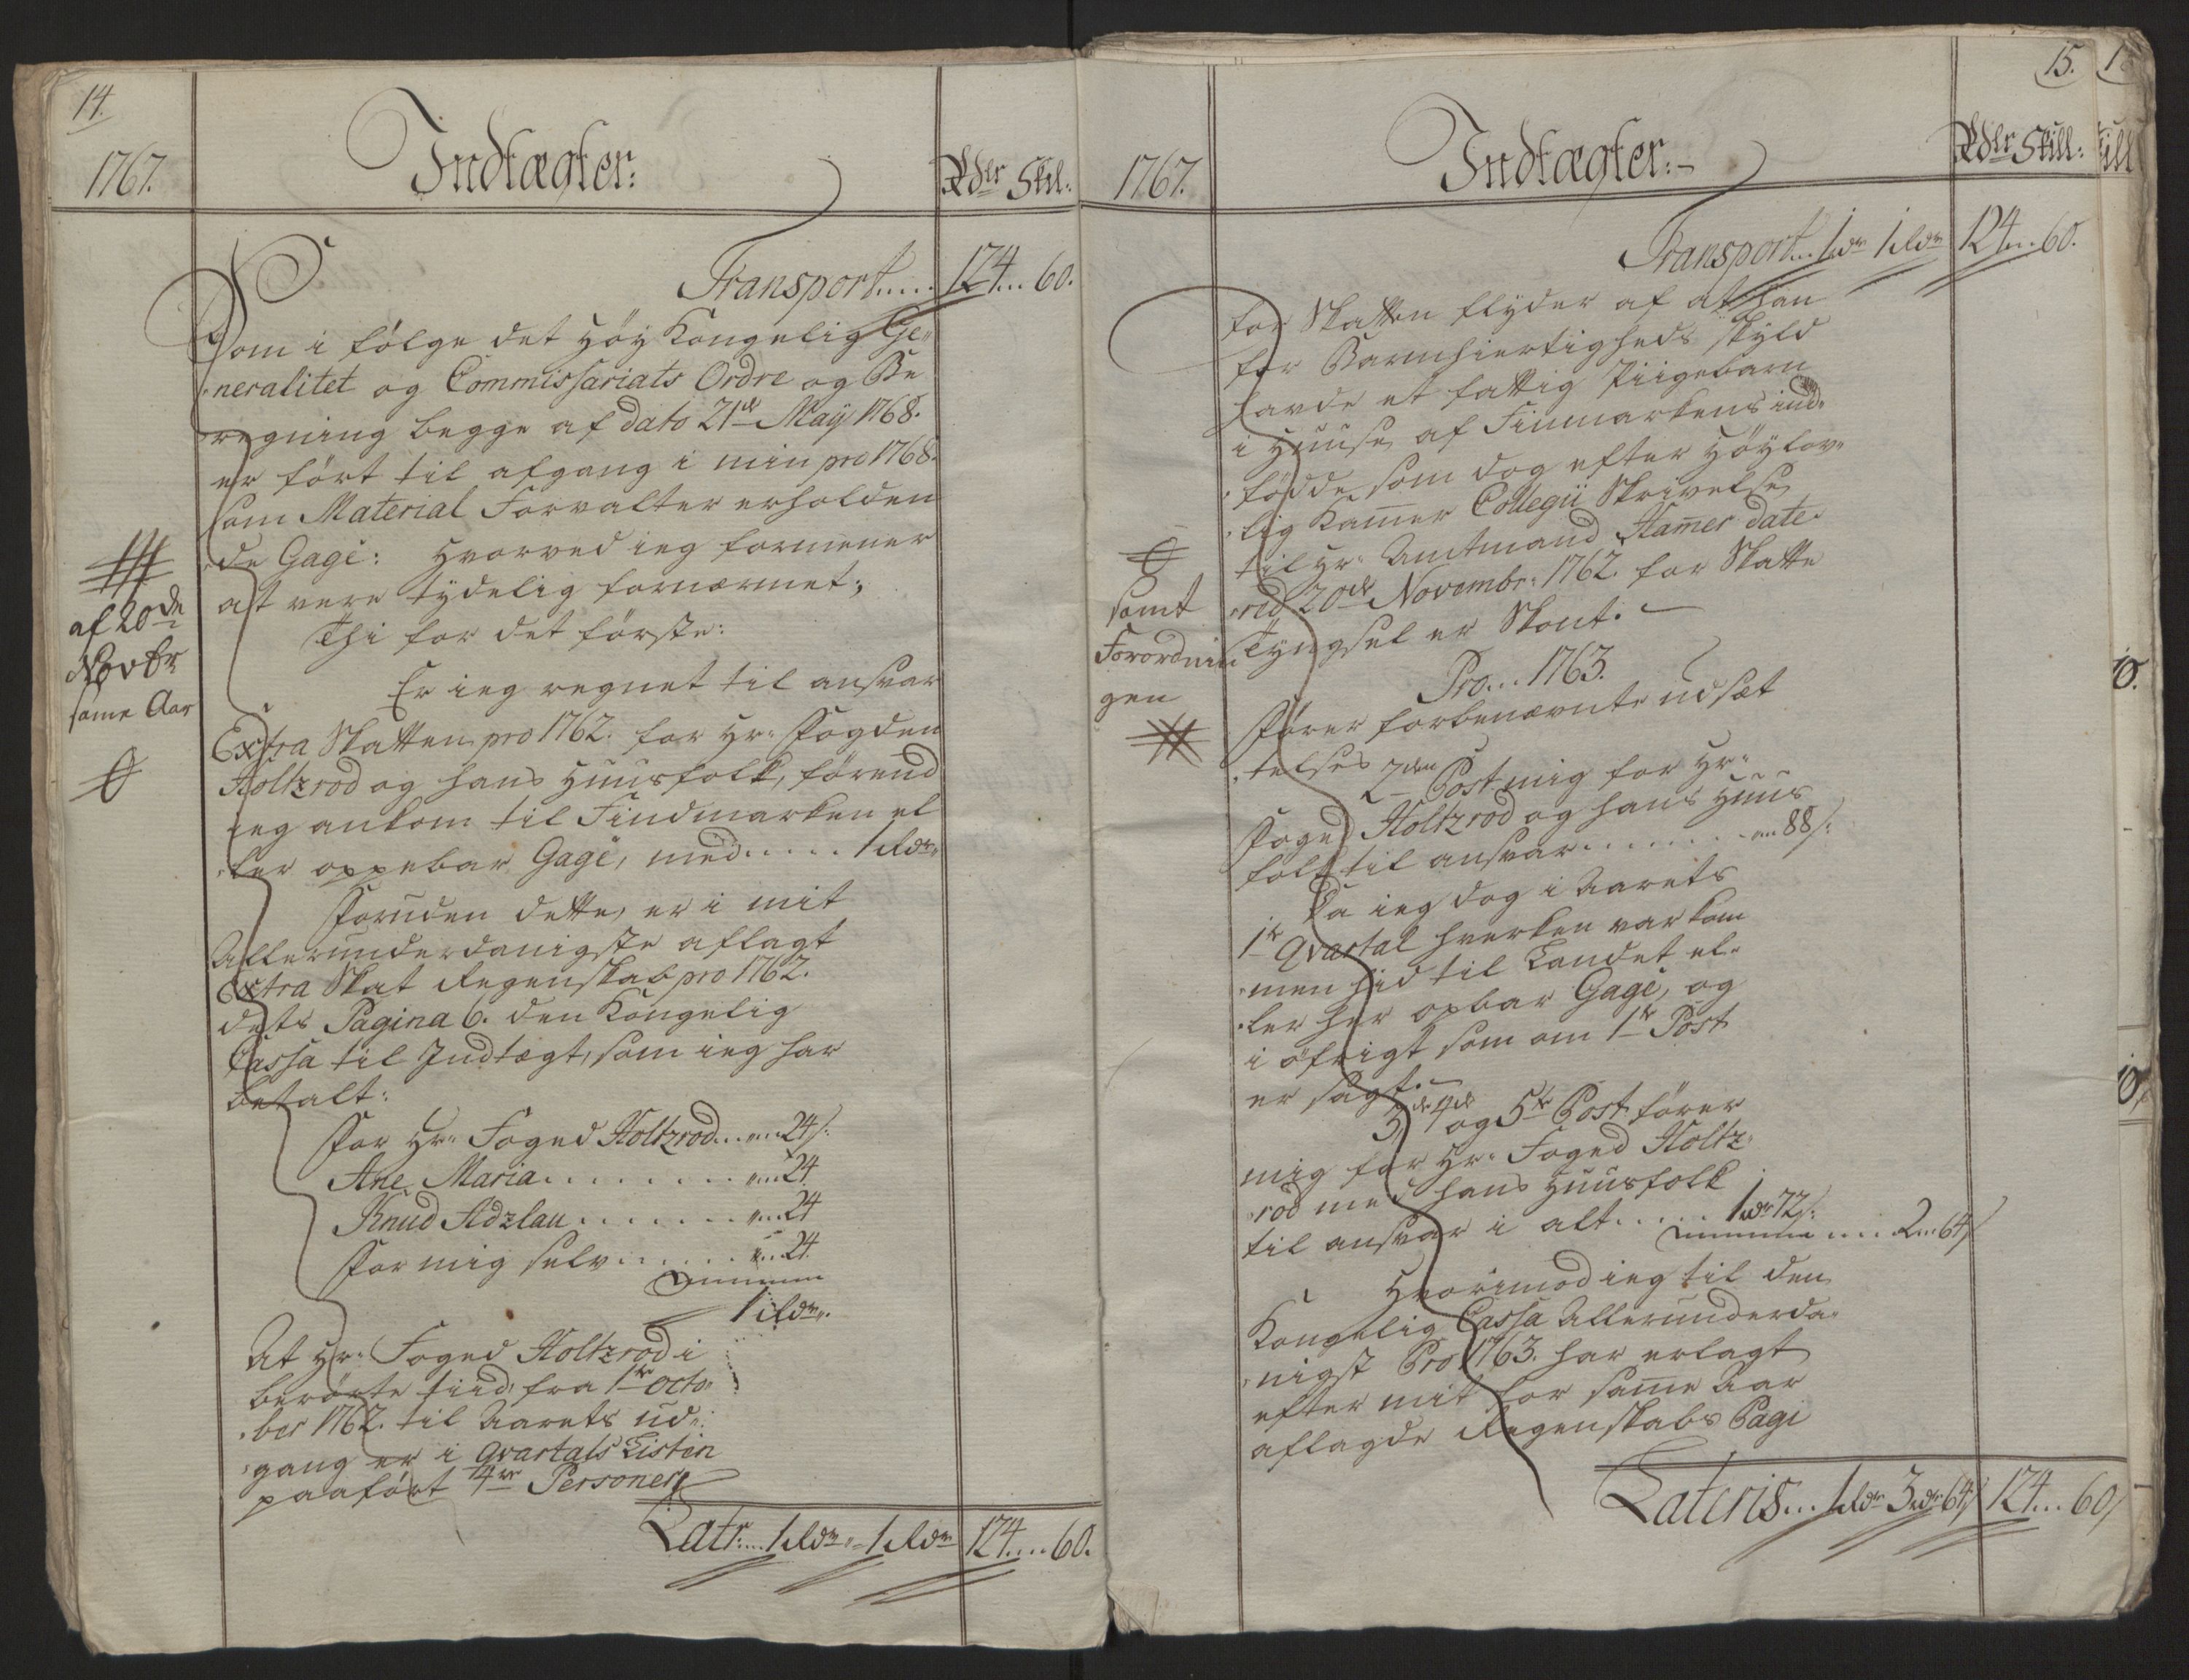 14.
1767.
Indtægter:
Rdlr Skil:
Transport..... 124... 60.
Som i følge det Høy Kongelig Ge„
„neralitet og Commissariats Ordre og Be
regning begge af dato 21de Maÿ 1768.
er ført til afgang i min pro 1768.
som Material Forvalter erholden
„de Gage: hvorved ieg formener
at være tydelig fornærmet;
Thi for det første:
Er ieg regnet til ansvar
Extra Skatten pro 1762. for Hr. Fogden
Holtzrod og hans Huusfolk, førend
ieg ankom til Findmarken el
„ler oppebar Gage, med..... 1 Rdr„
Foruden dette, er i mit
Allerunderdanigste aflagt
Extra Skat Regenskab pro 1762.
dets Pagina 6. den Kongelig
Cassa til Indtægt, som ieg har
betalt:
For Hr. Foged Holtzrod...„...24 s:
Ane Maria......... „...24
Knud Adzlau....... „...24
For mig selv...... „...24.
1 Rdr„.
At Hr. Foged Holtzrod i
berørte tiid, fra 1te Octo„
„ber 1762. til Aarets ud„
„gang er i Qvartals Listen
paaført 4re Personer
Latr.... 1 Rdr„ 1 Rdr 124.... 60.
af 20de
Novbr
same Aar
15.
1767.
Indtægter:
Rdlr Skill:
Transport... 1 dr 1 Rdr 124... 60.
for Skatten flyder af at han
for Barmhiertigheds skyld
havde et fattig Piigebarn
i Huuse af Finmarkens ind„
„fødde, som dog efter Høylov„
„lig Kamer Collegii Skrivelse
til Hr. Amtmand Hamer date„
„red 20de Novembr: 1762. for Skatte
Tyngsel er Skont.
samt
Forordnin
gen
Pro... 1763.
Fører forbenævnte udsæt
„telses 2den Post mig for Hr.
Foged Holtzrod og hans Huus
folk til ansvar....... „... 88 s:
Da ieg dog i Aarets
1te Qvartal hverken var kom
„men hid til Landet el„
„ler her opbar Gage, og
i øfrigt som om 1te Post
er sagt.
3de 4de og 5te Post fører
mig for Hr. Foged Holtz„
„rod med hans Huusfolk
til ansvar i alt..... 1 dr 72 s:
.... 2... 64 s
Hvorimod ieg til den
Kongelig Cassa Allerunderda„
„nigst Pro 1763. har erlagt
efter mit for same Aar
aflagde Regenskabs Pagi
Lateris... 1 Rdr 3 dr 64 s 124... 60,